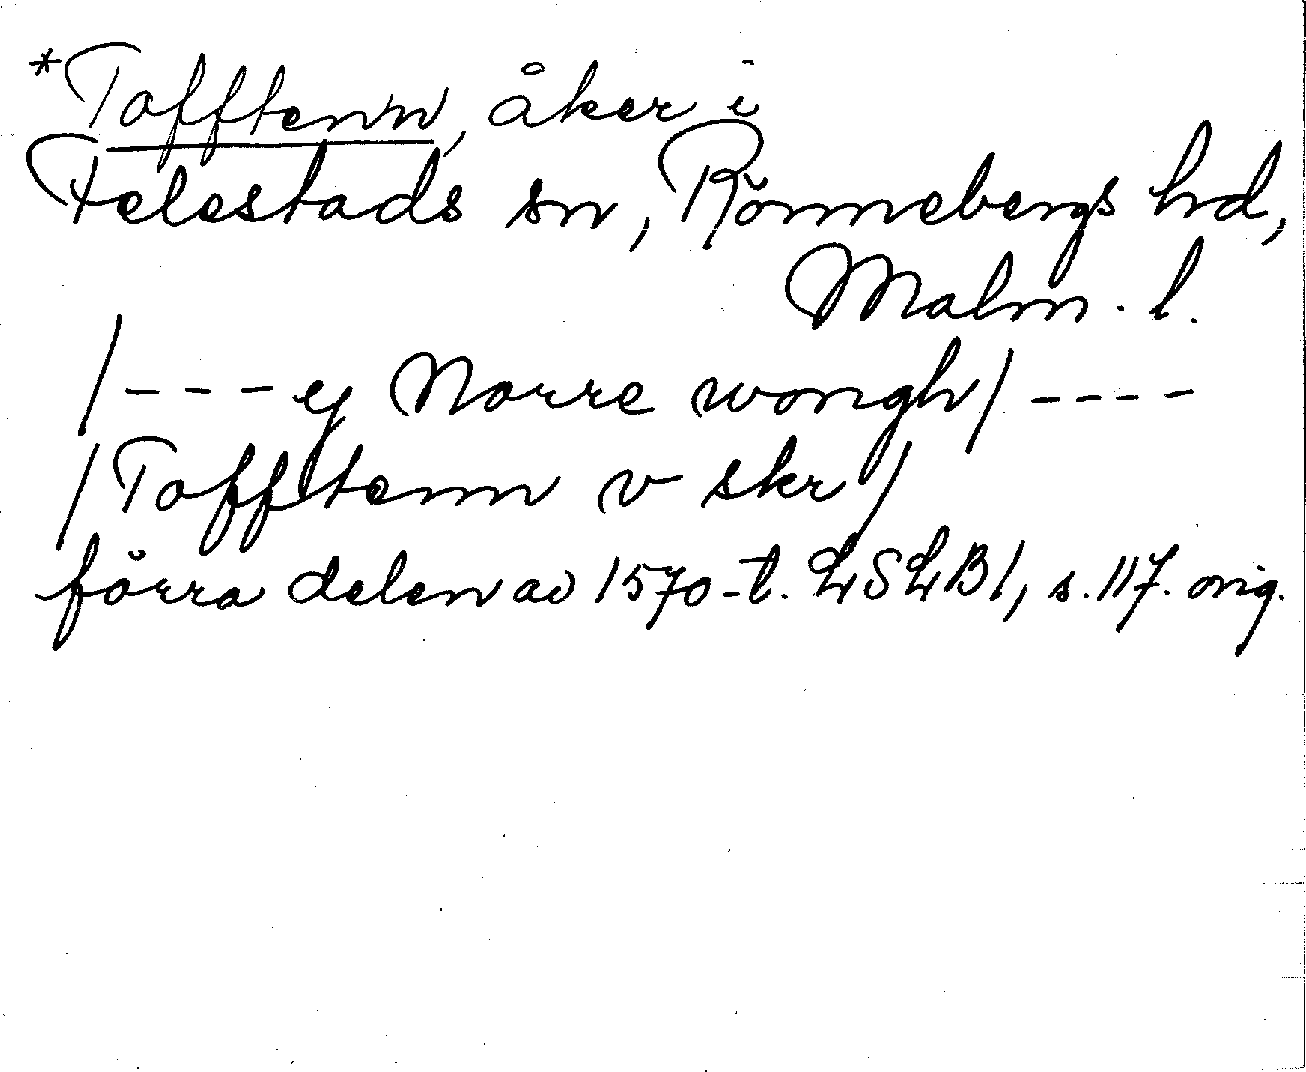 *Tofftenn, åker i
Felestads sn, Rönnebergs hrd,
Malm. l.
/ - - - ey Norre wongh/ - - - -
/Tofftenn v skr/
förra delen av 1570-t. LSLB1, s. 117. orig.